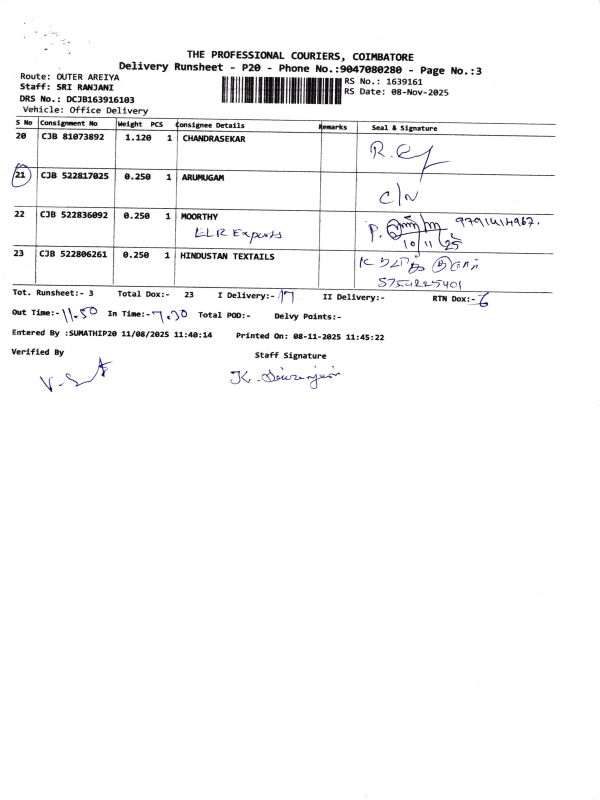 THE PROFESSIONAL COURIERS, COIMBATORE
Delivery Runsheet - P20 - Phone No.:9047080280 - Page No.:3
Route: OUTER AREIYA
RS No.: 1639161
Staff: SRI RANJANI
RS Date: 08-Nov-2025
DRS No.: DCJB163916103
Vehicle: Office Delivery
S No Consignment No Weight PCS Consignee Details Remarks Seal & Signature
20 CJB 81073892 1.120 1 CHANDRASEKAR
21 CJB 522817025 0.250 1 ARUMUGAM C/N
22 CJB 522836092 0.250 1 MOORTHY
LLR Exports
10/11/25
23 CJB 522806261 0.250 1 HINDUSTAN TEXTAILS
Tot. Runsheet:- 3 Total Dox:- 23 I Delivery:- 17 II Delivery:- RTN Dox:- 6
Out Time:- 11.50 In Time:- 7.30 Total POD:- Delvy Points:-
Entered By :SUMATHIP20 11/08/2025 11:40:14 Printed On: 08-11-2025 11:45:22
Verified By Staff Signature